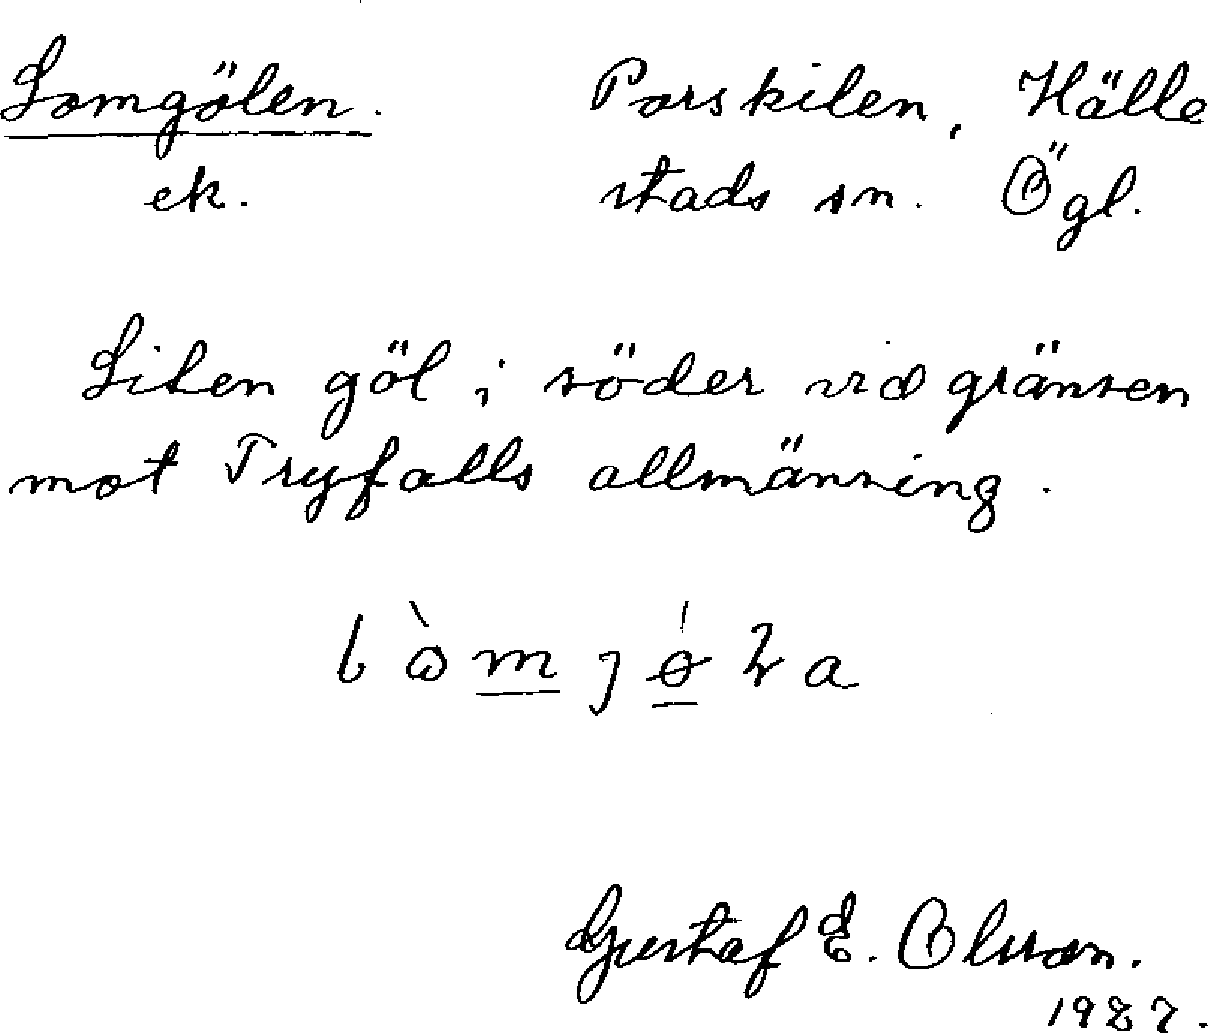 Lomgölen. Porskilen, Hälle
ek. stads sn. Ögl.
Liten göl i söder vid gränsen
mot Tryfalls allmänning.
Gustaf E. Olsson.